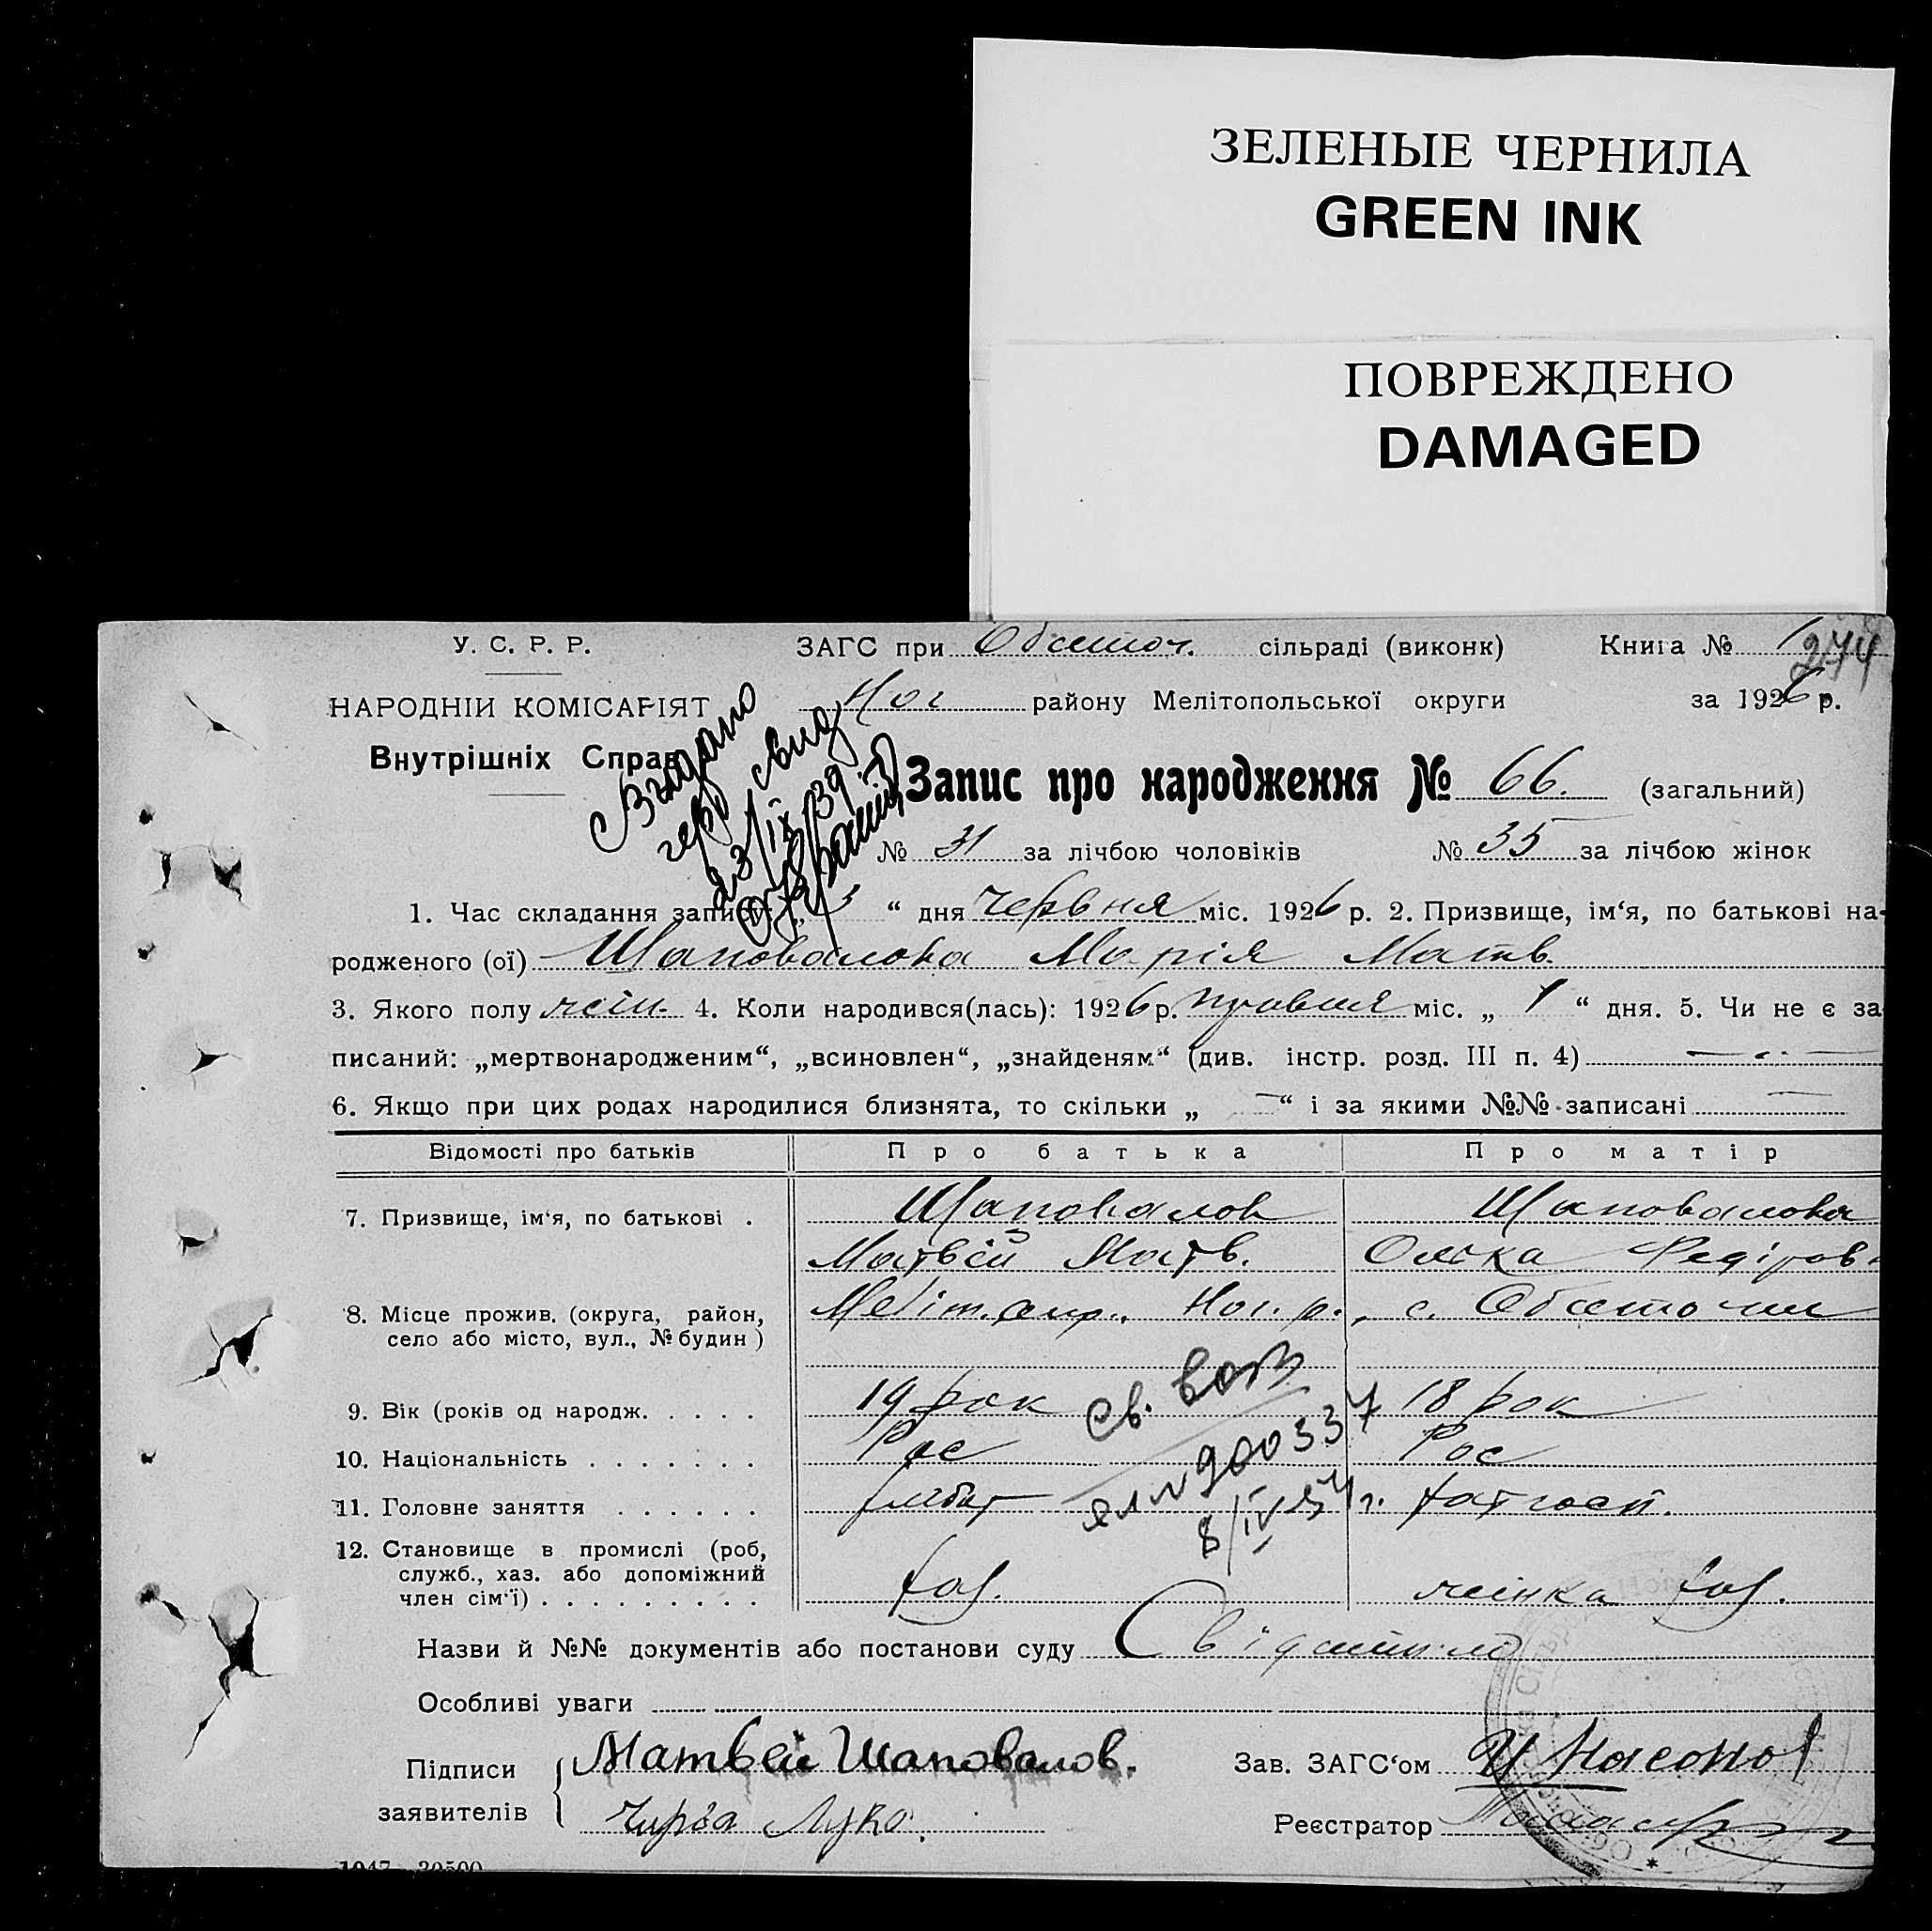 ЗЕЛЕНЫЕ ЧЕРНИЛА
GREEN INK
ПОВРЕЖДЕНО
DAMAGED
У. С. Р. Р. ЗАГС при Обиточ. сільраді (виконк) Книга № 1
274
НАРОДНІЙ КОМІСАРІЯТ Ног району Мелітопольської округи за 1926 р.
Внутрішніх Справ
Запис про народження № 66. (загальний)
23/IX 39
№ 31 за лічбою чоловіків № 35 за лічбою жінок
1. Час складання запису: „ 5 “ дня червня міс. 1926 р. 2. Призвище, ім‘я, по батькові на-
родженого (ої) Шаповалова Марія Матв.
3. Якого полу жін. 4. Коли народився(лась): 1926 р. травня міс. „ 1 “ дня. 5. Чи не є за
писаний: „мертвонародженим“, „всиновлен“, „знайденям“ (див. інстр. розд. III п. 4)
6. Якщо при цих родах народилися близнята, то скільки „ — “ і за якими №№ записані —
Відомості про батьків Про батька Про матір
7. Призвище, ім‘я, по батькові . Шаповалов Шаповалова
Матвій Матв. Олька Федіров
8. Місце прожив. (округа, район, Меліт. окр., Ног. р., с. Обиточне
село або місто, вул., № будин )
9. Вік (років од народж. . . . . 19 рок 18 рок
10. Національність . . . . . . . Рос Рос
Св.
ял № 900337
8/IV 54 г.
11. Головне заняття . . . . . . хлібор хатгосп.
12. Становище в промислі (роб,
служб., хаз. або допоміжний
член сім‘ї) . . . . . . . . . хаз. жінка хаз.
Назви й №№ документів або постанови суду
Особливі уваги
Підписи Матвей Шаповалов. Зав. ЗАГС‘ом И Насонов
заявителів Чирва Лука. Реєстратор
1047—30500